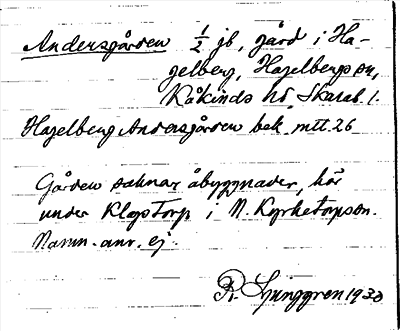 Andersgården 1/2 jb, gård i Ha-
gelberg, Hagelbergs sn,
Kåkinds hd, Skarab. l.
Hagelberg Andersgården bek. mtl. 26
Gården saknar åbyggnader, hör
under Klapstorp i N. Kyrketorpssn.
Namn. anv. ej.
R. Ljunggren 1930